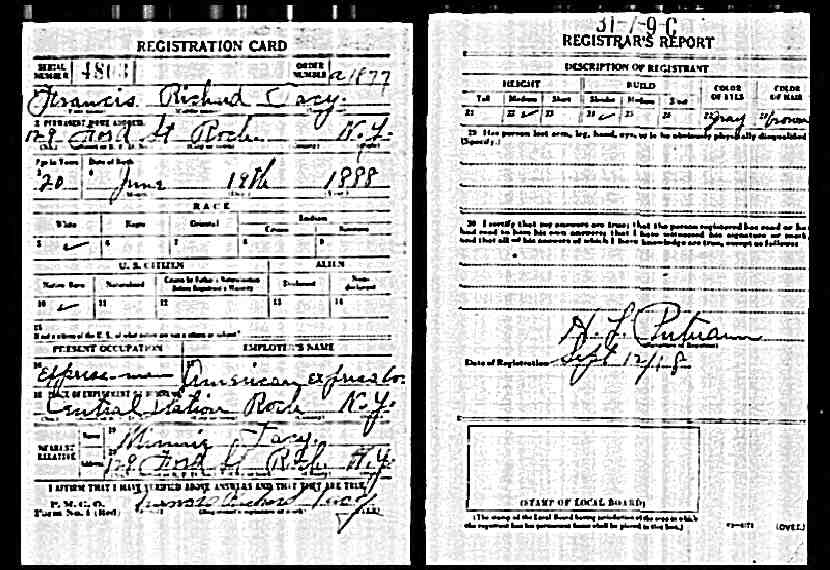 REGISTRATION CARD
SERIAL NUMBER 4803 ORDER NUMBER a1877
Francis Richard Tacy
2 PERMANENT HOME ADDRESS:
129 Ford St Roch. N.Y.
Age in Years Date of Birth
20 June 19th 1898
RACE
White Negro Oriental Indian
Citizen Noncitizen
5 ✓ 6 7 8 9
U. S. CITIZEN ALIEN
Native Born Naturalized Citizen by Father's Naturalization Before Registrant's Majority Declarant Non-declarant
10 ✓ 11 12 13 14
15
If not a citizen of the U. S., of what nation are you a citizen or subject?
PRESENT OCCUPATION EMPLOYER'S NAME
Express-man American Express Co.
PLACE OF EMPLOYMENT OR BUSINESS
Central Station Roch N.Y.
NEAREST RELATIVE Name Minnie Tacy.
Address 129 Ford St Roch. N.Y.
I AFFIRM THAT I HAVE VERIFIED ABOVE ANSWERS AND THAT THEY ARE TRUE
P. M. G. O.
Form No. 1 (Red) Francis Richard Tacy
31-7-9-C
REGISTRAR'S REPORT
DESCRIPTION OF REGISTRANT
HEIGHT BUILD COLOR OF EYES COLOR OF HAIR
Tall Medium Short Slender Medium Stout
21 22 ✓ 23 24 ✓ 25 26 27 gray brown
29 Has person lost arm, leg, hand, eye, or is he obviously physically disqualified
(Specify.)
30 I certify that my answers are true; that the person registered has read or has
had read to him his own answers; that I have witnessed his signature or mark,
and that all of his answers of which I have knowledge are true, except as follows:
H. L. Putnam
(Signature of Registrar)
Date of Registration Sept 12/18
(STAMP OF LOCAL BOARD)
(The stamp of the Local Board having jurisdiction of the area in which
the registrant has his permanent home shall be placed in this box.)
(OVER)